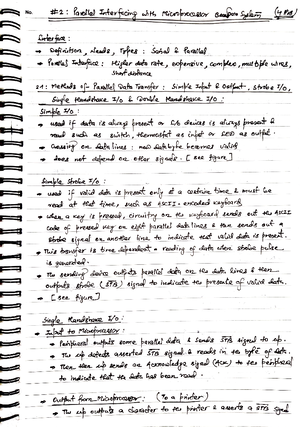 No.
#2: Parallel Interfacing with Microprocessor Based System
Interface:
→ Definition, Needs, Types: Serial & Parallel
→ Parallel Interface: Higher data rate, expensive, complex, multiple wires,
short distance
2.1: Methods of Parallel Data Transfer: Simple Input & Output, Strobe I/O,
Single Handshake I/O & Double Handshake I/O:
Simple I/O:
→ used if data is always present or I/O devices is always present &
read such as switch, thermostat as input or LED as output.
→ Crossing on data lines: new data byte becomes valid
→ does not depend on other signals. [see figure]
Simple Strobe I/O:
→ used if valid data is present only at a certain time & must be
read at that time, such as ASCII-encoded keyboard
→ When a key is pressed, circuitry on the keyboard sends out the ASCII
code of pressed key on eight parallel data lines & then sends out a
strobe signal on another line to indicate that valid data is present.
→ This transfer is time dependent → reading of data when strobe pulse
is generated.
→ The sending device outputs parallel data on the data lines & then
outputs strobe (STB) signal to indicate the presence of valid data.
→ [see figure]
Single Handshake I/O:
→ Input to Microprocessor:
→ Peripheral outputs some parallel data & sends STB signal to μp.
→ The μp detects asserted STB signal & reads in the byte of data.
→ Then the μp sends an Acknowledge signal (ACK) to the peripheral
to indicate that the data has been read.
→ Output from Microprocessor: (To a printer)
→ The μp outputs a character to the printer & asserts a STB signal